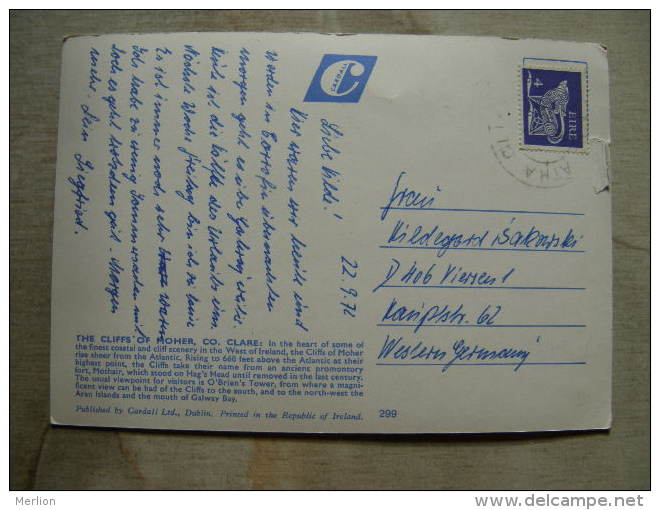 CARDALL
4
EIRE
22.9.72
Liebe Hilde!
Hier waren wir heute und
werden in übernachten
morgen geht es über Galway weiter.
Heute ist die Hälfte des Urlaubs um,
Nächste Woche Freitag bin ich zu Hause
Es ist immer noch sehr warm
Ich habe zu wenig
doch es geht trotzdem gut. Morgen
mehr. Dein Siegfried.
Frau
Hildegard Sakowski
D 406 Viersen 1
Hauptstr. 62
Western Germany
THE CLIFFS OF MOHER, CO. CLARE: In the heart of some of
the finest coastal and cliff scenery in the West of Ireland, the Cliffs of Moher
rise sheer from the Atlantic. Rising to 668 feet above the Atlantic at their
highest point, the Cliffs take their name from an ancient promontory
fort, Mothair, which stood on Hag's Head until removed in the last century.
The usual viewpoint for visitors is O'Brien's Tower, from where a magni-
ficent view can be had of the Cliffs to the south, and to the north-west the
Aran Islands and the mouth of Galway Bay.
Published by Cardall Ltd., Dublin. Printed in the Republic of Ireland.
299
Merlion
www.delcampe.net